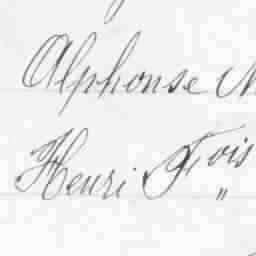 Alphonse
Henri Fois